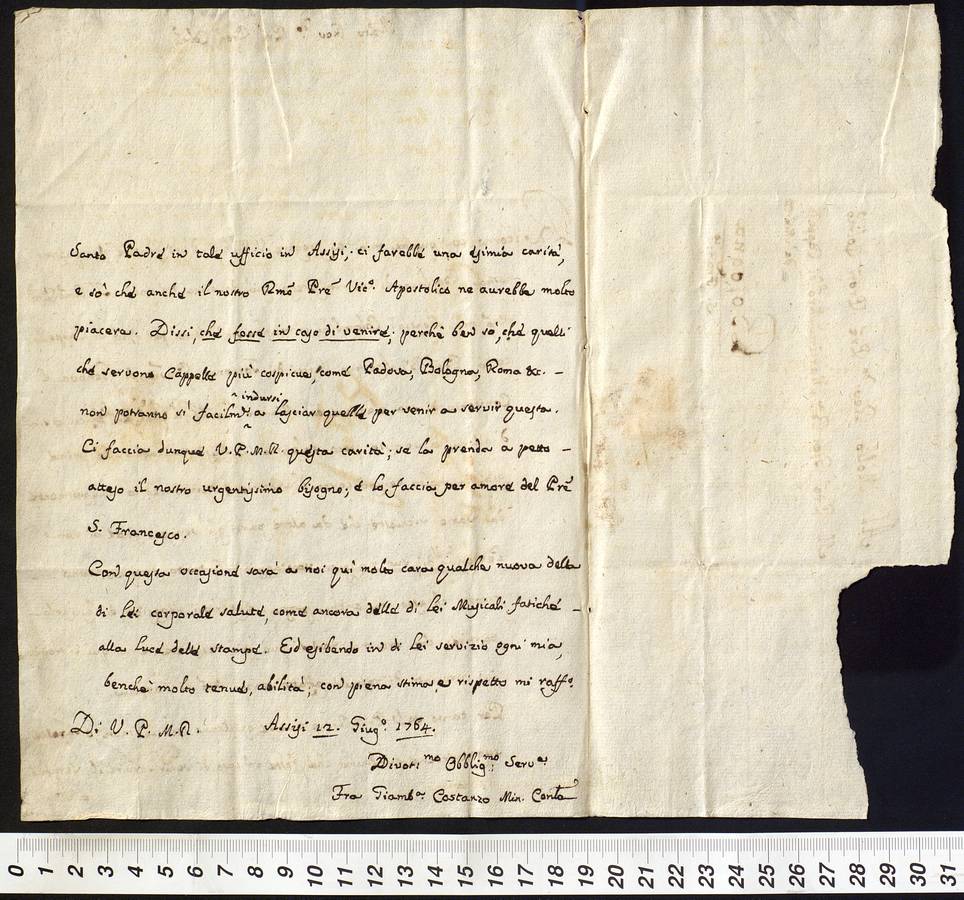 Santo Padre in tale ufficio in Assisi, ci farebbe una esimia carità,
e sò che anche il nostro Rmõ Prẽ Vic.º Apostolico ne aurebbe molto
piacere. Dissi, che fosse in caso di venire; perchè ben sò, che quelli
che servono Cappelle più cospicue, come Padova, Bologna, Roma &c. –
indursi
non potranno sì facilm.ᵉ a lasciar quelle per venir a servir questa.
Ci faccia dunque V. P. M. R. questa carità; se la prenda à petto –
atteso il nostro urgentissimo bisogno; e lo faccia per amore del Prẽ
S. Francesco.
Con questa occasione sarà a noi quì molto cara qualche nuova della
di Lei corporale salute, come ancora delle di lei Musicali fatiche –
alla luce delle stampe. Ed esibendo in di Lei servizio ogni mia,
benchè molto tenue, abilità; con piena stima, e rispetto mi raffº
Di V. P. M. R. Assisi 12. Giugº. 1764.
Divotiᵐº Obbligᵐº Servᵉ
Fra Giambᵃ. Costanzo Min. Contle
0 1 2 3 4 5 6 7 8 9 10 11 12 13 14 15 16 17 18 19 20 21 22 23 24 25 26 27 28 29 30 31